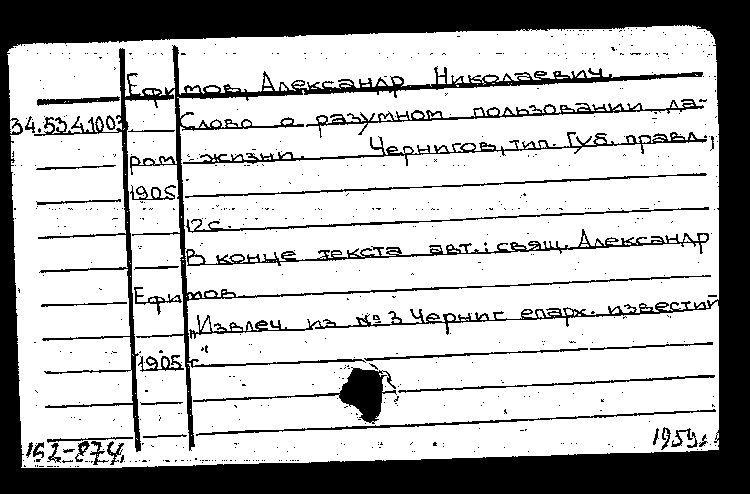 Ефимов, Александр Николаевич.
34.53.4.1003 Слово о разумном пользовании да-
ром жизни. Чернигов, тип. Губ. правл.,
1905.
12 с.
В конце текста авт.: свящ. Александр
Ефимов.
"Извлеч. из № 3 Черниг епарх. известий
1905 г."
162-874. 1959г.